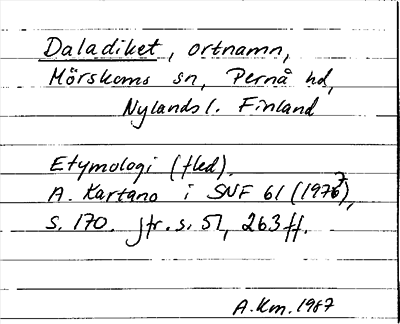 Daladiket, ortnamn,
Mörskoms sn, Pernå hd,
Nylands l. Finland
Etymologi (fled).
A. Kartano i SNF 61 (1977),
s. 170. Jfr. s. 51, 263 ff.
A.Km. 1987